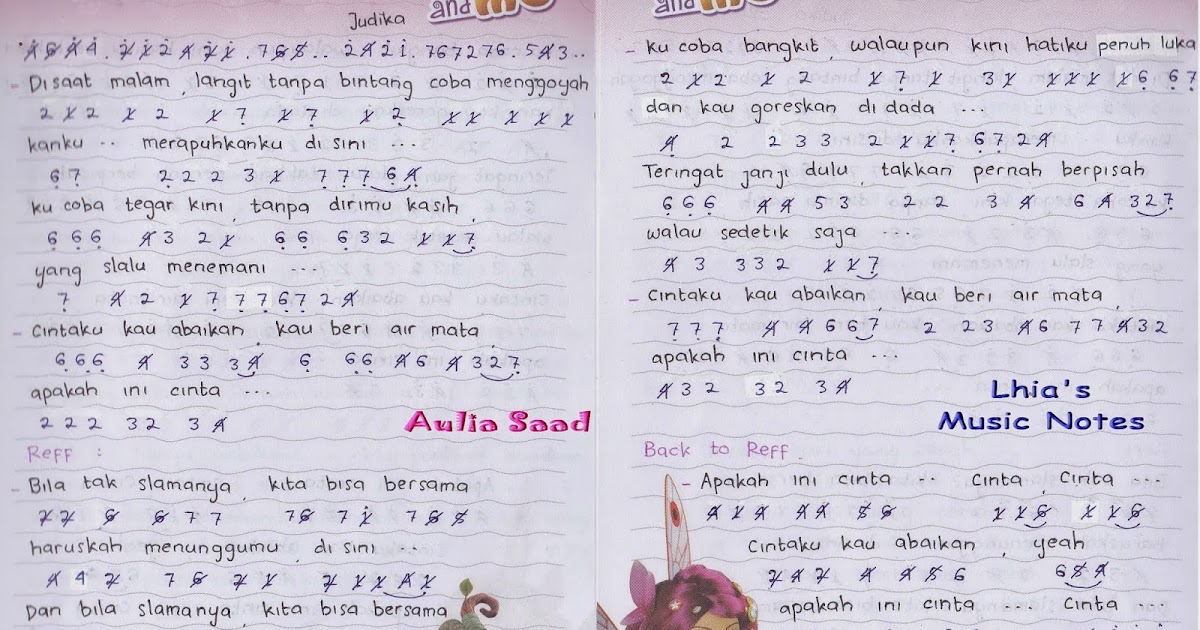 Judika
and me
4 6 4 4 . 2 1 2 4 2 1 . 7 6 5 .. 2 4 2 1 . 7 6 7 2 7 6 . 5 4 3 ..
- Disaat malam, langit tanpa bintang coba menggoyah
2 1 2 1 2 1 7 1 7 1 2 1 1 1 1 1
kanku .. merapuhkanku di sini ...
6 7 2 2 2 3 1 7 7 7 6 4
ku coba tegar kini, tanpa dirimu kasih
6 6 6 4 3 2 1 6 6 6 3 2 1 1 7
yang slalu menemani ....
7 4 2 1 7 7 7 6 7 2 4
- Cintaku kau abaikan, kau beri air mata
6 6 6 4 3 3 3 4 6 6 6 4 6 4 3 2 7
apakah ini cinta ...
2 2 2 3 2 3 4
Aulia Saad
Reff :
- Bila tak slamanya, kita bisa bersama
2 2 6 6 7 7 7 6 7 1 7 6 5
haruskah menunggumu di sini ...
4 4 2 7 6 2 1 2 1 1 4 1
Dan bila slamanya, kita bisa bersama
and me
- ku coba bangkit, walaupun kini hatiku penuh luka
2 1 2 1 2 1 7 1 3 1 1 1 1 1 6 6 7
dan kau goreskan di dada ....
4 2 2 3 3 2 1 1 7 6 7 2 4
Teringat janji dulu, takkan pernah berpisah
6 6 6 4 4 5 3 2 2 3 4 6 4 3 2 7
walau sedetik saja ...
4 3 3 3 2 1 1 7
- Cintaku kau abaikan, kau beri air mata
7 7 7 4 4 6 6 7 2 2 3 4 6 7 7 4 3 2
apakah ini cinta ...
4 3 2 3 2 3 4
Lhia's
Music Notes
Back to Reff
- Apakah ini cinta .. Cinta, Cinta ....
4 1 4 4 4 5 6 1 1 6 1 1 6
Cintaku kau abaikan, yeah
2 4 2 4 4 5 6 6 5 4
apakah ini cinta ... Cinta ...